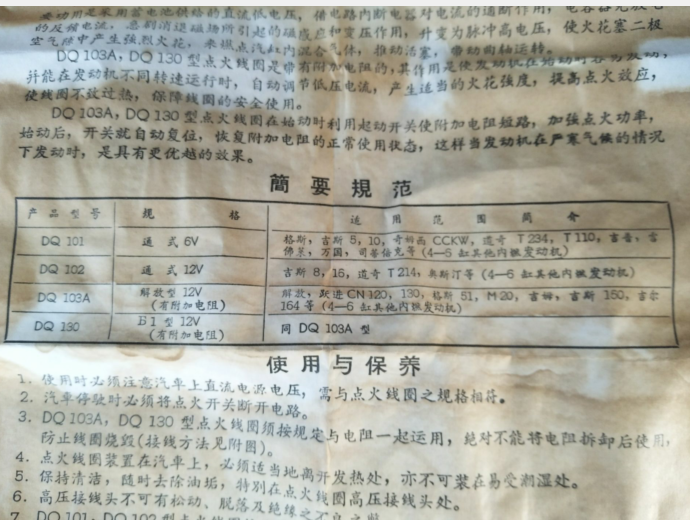 的反馈电流，急剧消退磁场所引起的磁感应和变压作用，升变为脉冲高电压，使火花塞二极
空气隙中产生强烈火花，来燃点汽缸内混合气体，推动活塞，带动曲轴运转。
DQ 103A，DQ 130 型点火线圈是带有附加电阻的，其作用是使发动机在始动时容易发动，
并能在发动机不同转速运行时，自动调节低压电流，产生适当的火花强度，提高点火效应，
使线圈不致过热，保障线圈的安全使用。
DQ 103A，DQ 130 型点火线圈在始动时利用起动开关使附加电阻短路，加强点火功率，
始动后，开关就自动复位，恢复附加电阻的正常使用状态，这样当发动机在严寒气候的情况
下发动时，是具有更优越的效果。
簡要規范
产品型号 规格 适用范围简介
DQ 101 通式 6V 格斯，吉斯 5，10，奇姆西 CCKW，道奇 T234，T110，吉普，
万国，司蒂倍克等（4—6 缸其他内燃发动机）
DQ 102 通式 12V 吉斯 8，16，道奇 T214，奥斯汀等（4—6 缸其他内燃发动机）
DQ 103A 解放型 12V（有附加电阻） 解放，跃进 CN120，130，格斯 51，M20，吉姆，吉斯 150，吉尔
164 等（4—6 缸其他内燃发动机）
DQ 130 B1 型 12V（有附加电阻） 同 DQ 103A 型
使用与保养
1．使用时必须注意汽车上直流电源电压，需与点火线圈之规格相符。
2．汽车停驶时必须将点火开关断开电路。
3．DQ 103A，DQ 130 型点火线圈须按规定与电阻一起运用，绝对不能将电阻拆卸后使用，
防止线圈烧毁（接线方法见附图）。
4．点火线圈装置在汽车上，必须适当地离开发热处，亦不可装在易受潮湿处。
5．保持清洁，随时去除油垢，特别在点火线圈高压接线头处。
6．高压接线头不可有松动、脱落及绝缘之不良之弊
7．DQ 101，DQ 102 型点火线圈